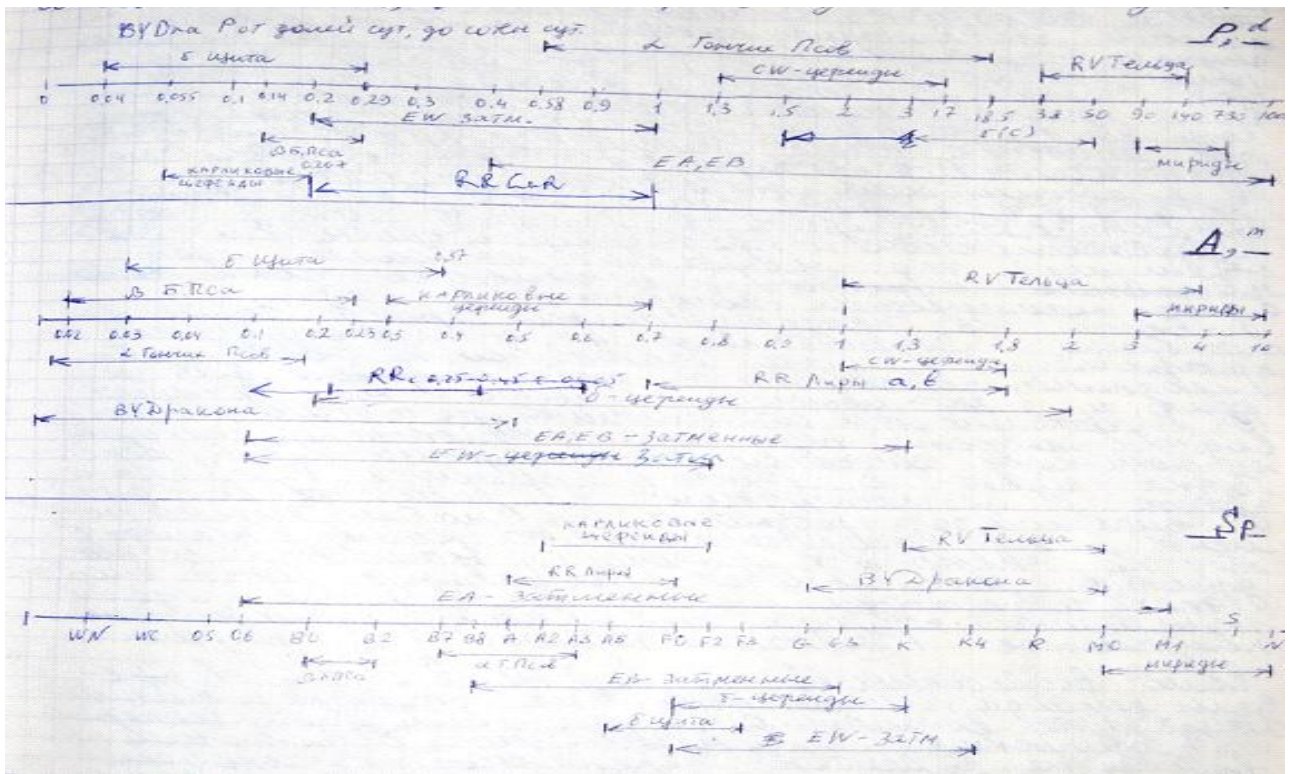 BY Dra P от долей сут. до сотен сут.
P, d
α Гончих Псов
δ Щита
CW-цефеиды
RV Тельца
0 0,04 0,055 0,1 0,14 0,2 0,29 0,3 0,4 0,58 0,9 1 1,3 1,5 2 3 17 18,5 30 50 90 140 730 1000
EW затм.
δ(C)
β Б.Пса
EA, EB
мириды
карликовые
цефеиды
A, m
δ Щита 0,57
RV Тельца
β Б.Пса
карликовые
цефеиды
мириды
0,02 0,03 0,04 0,1 0,2 0,25 0,3 0,4 0,5 0,6 0,7 0,8 0,9 1 1,3 1,8 2 3 4 10
α Гончих Псов
CW-цефеиды
RR Лиры a, b
δ-цефеиды
BY Дракона
EA, EB - затменные
EW-цефеиды Затм
Sp
карликовые
цефеиды
RV Тельца
RR Лиры
BY Дракона
EA - затменные
WN WC O5 O6 B0 B2 B7 B8 A A2 A3 A5 F0 F2 F3 G G3 K K4 R M0 M1 S N
α Г.Псов
мириды
EB затменные
δ-цефеиды
δ Щита
EW-затм.